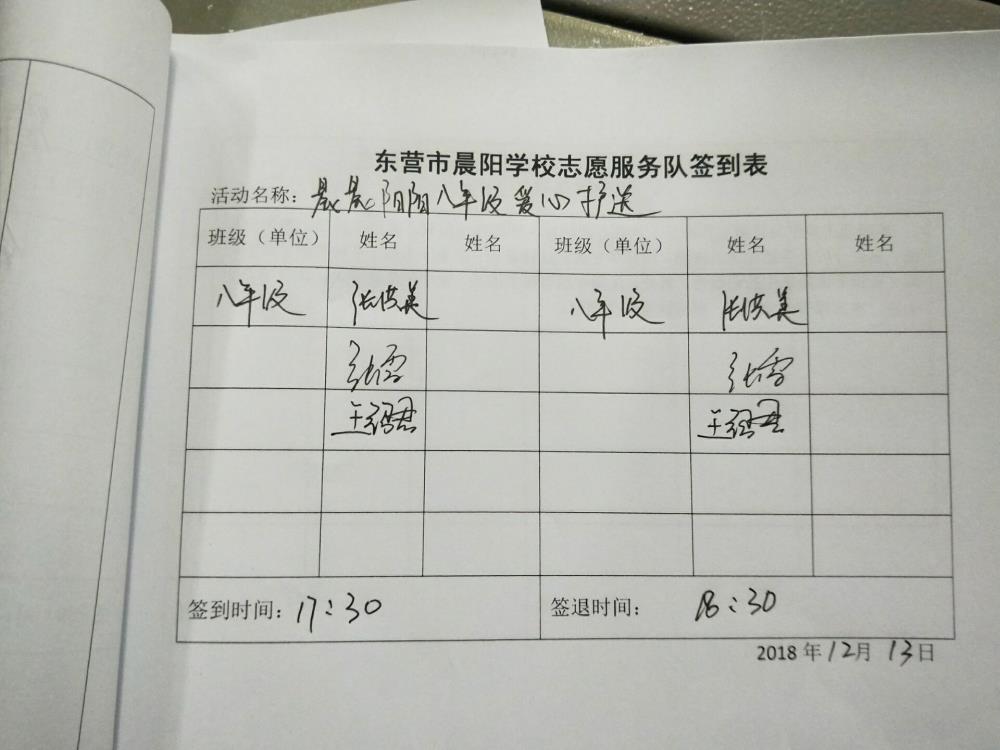 东营市晨阳学校志愿服务队签到表
活动名称：晨晨阳阳八年级爱心护送
班级（单位） 姓名 姓名 班级（单位） 姓名 姓名
八年级 张洪美 八年级 张洪美
张雪 张雪
王 王
签到时间：17：30 签退时间：18：30
2018年12月13日